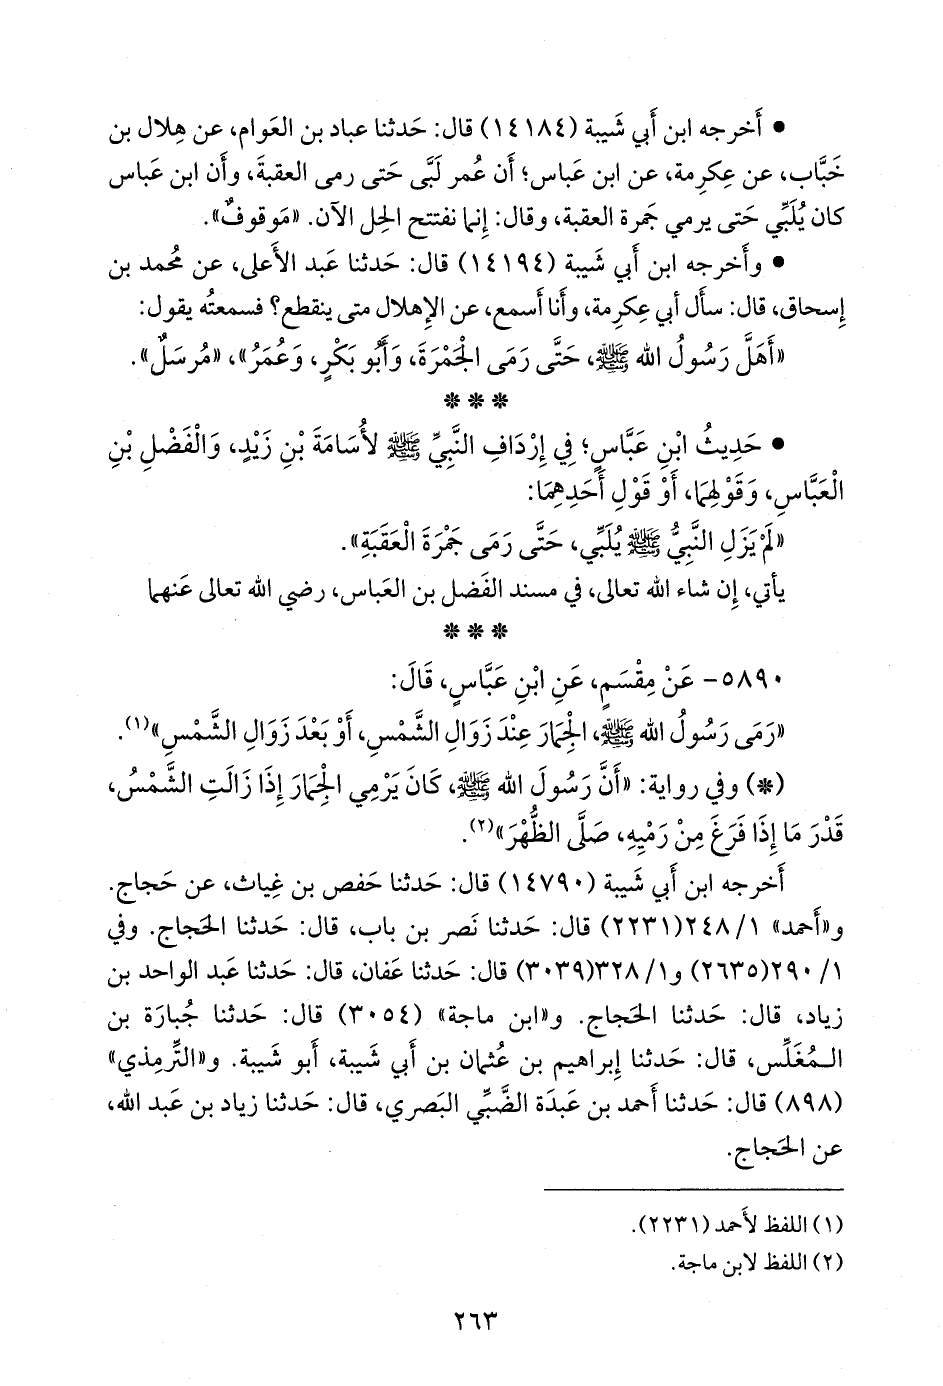 • أَخرجه ابن أبي شَيبة (١٤١٨٤) قال: حَدثنا عباد بن العَوام، عن هِلال بن
خَبَّاب، عن عِكرِمة، عن ابن عَباس؛ أن عُمر لَبَّى حَتى رمى العقبةَ، وأَن ابن عَباس
كان يُلَبِّي حَتى يرمي جَمرة العقبة، وقال: إِنما نفتتح الحِل الآن. «مَوقوفٌ».
• وأَخرجه ابن أبي شَيبة (١٤١٩٤) قال: حَدثنا عَبد الأَعلى، عن مُحمد بن
إِسحاق، قال: سأَل أبي عِكرِمة، وأَنا أَسمع، عن الإِهلال متى ينقطع؟ فسمعتُه يقول:
«أَهَلَّ رَسُولُ الله ﷺ، حَتَّى رَمَى الْجَمْرَةَ، وَأَبُو بَكْرٍ، وَعُمَرُ»، «مُرسَلٌ».
* * *
• حَدِيثُ ابْنِ عَبَّاسٍ؛ فِي إِرْدَافِ النَّبِيِّ ﷺ لأُسَامَةَ بْنِ زَيْدٍ، وَالْفَضْلِ بْنِ
الْعَبَّاسِ، وَقَوْلِهِمَا، أَوْ قَوْلِ أَحَدِهِمَا:
«لَمْ يَزَلِ النَّبِيُّ ﷺ يُلَبِّي، حَتَّى رَمَى جَمْرَةَ الْعَقَبَةِ».
يأتي، إِن شاء الله تعالى، في مسند الفَضل بن العَباس، رضي الله تعالى عَنهما
* * *
٥٨٩٠- عَنْ مِقْسَمٍ، عَنِ ابْنِ عَبَّاسٍ، قَالَ:
«رَمَى رَسُولُ الله ﷺ، الْجِمَارَ عِنْدَ زَوَالِ الشَّمْسِ، أَوْ بَعْدَ زَوَالِ الشَّمْسِ»(١).
(*) وفي رواية: «أَنَّ رَسُولَ الله ﷺ، كَانَ يَرْمِي الْجِمَارَ إِذَا زَالَتِ الشَّمْسُ،
قَدْرَ مَا إِذَا فَرَغَ مِنْ رَمْيِهِ، صَلَّى الظُّهْرَ»(٢).
أَخرجه ابن أبي شَيبة (١٤٧٩٠) قال: حَدثنا حَفص بن غِياث، عن حَجاج.
و«أَحمد» ١/ ٢٤٨(٢٢٣١) قال: حَدثنا نَصر بن باب، قال: حَدثنا الحَجاج. وفي
١/ ٢٩٠(٢٦٣٥) و١/ ٣٢٨(٣٠٣٩) قال: حَدثنا عَفان، قال: حَدثنا عَبد الواحد بن
زياد، قال: حَدثنا الحَجاج. و«ابن ماجة» (٣٠٥٤) قال: حَدثنا جُبارَة بن
الـمُغَلِّس، قال: حَدثنا إِبراهيم بن عُثمان بن أبي شَيبة، أَبو شَيبة. و«التِّرمِذي»
(٨٩٨) قال: حَدثنا أَحمد بن عَبدَة الضَّبِّي البَصري، قال: حَدثنا زياد بن عَبد الله،
عن الحَجاج.
(١) اللفظ لأَحمد (٢٢٣١).
(٢) اللفظ لابن ماجة.
٢٦٣